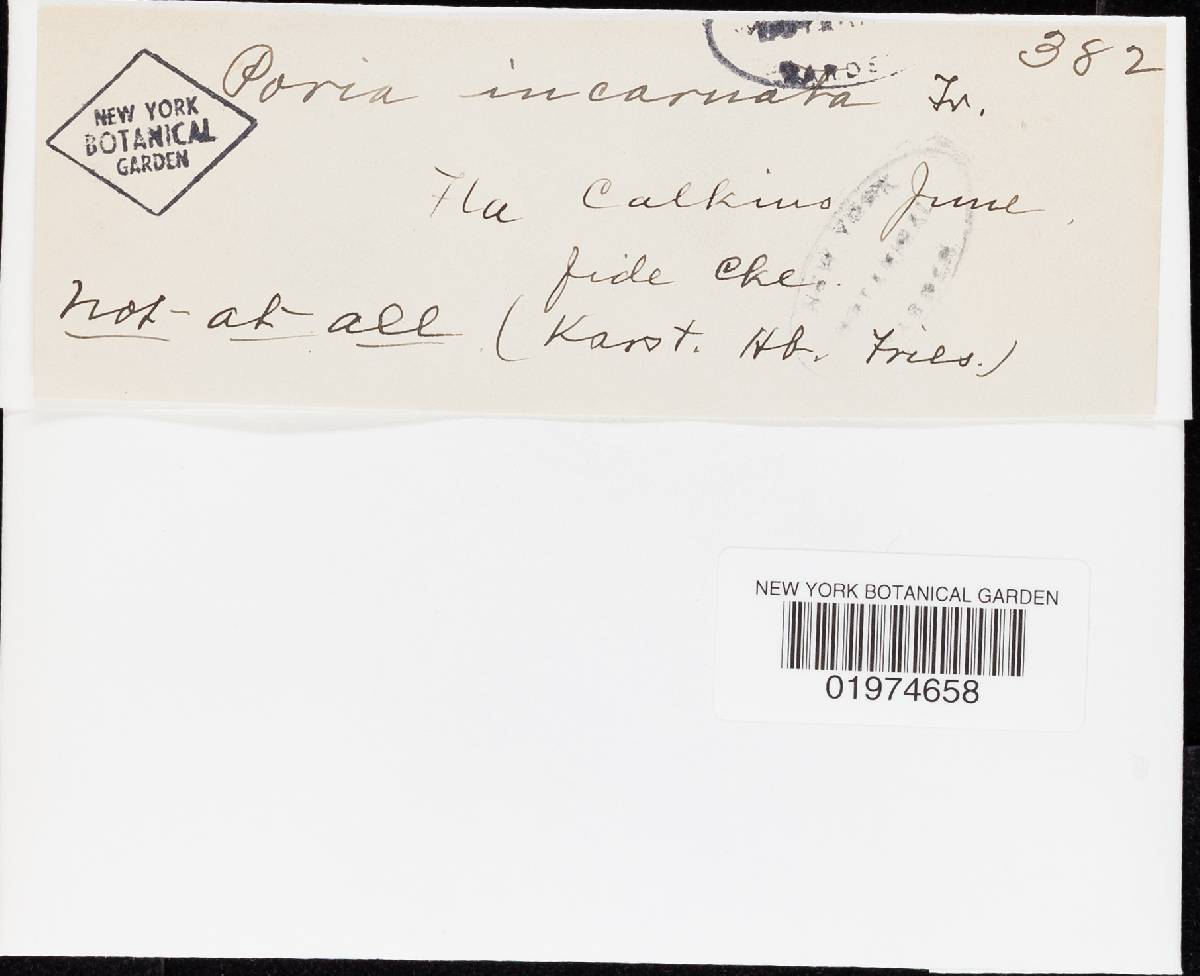 382
Poria incarnata Fr.
NEW YORK
BOTANICAL
GARDEN
Fla Calkins June.
fide Cke.
not at all (Karst. Hb. Fries.)
NEW YORK
BOTANICAL
GARDEN
NEW YORK BOTANICAL GARDEN
01974658